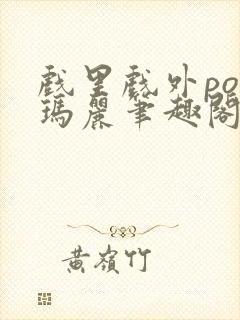 戲里戲外po
瑪麗筆趣閣
黃嶺竹